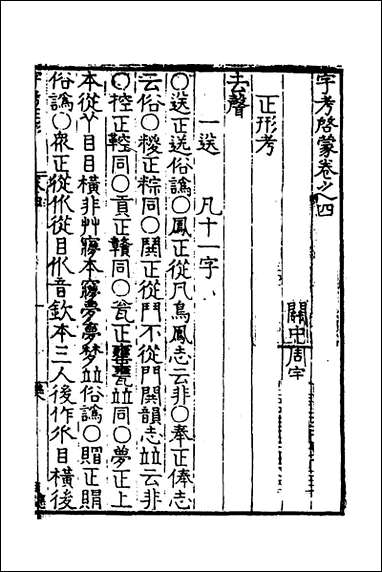 字考啓蒙卷之四
關中周宇
正形考
去聲
一送 凡十一字
○送正送俗譌○鳳正從凡鳥鳳志云非○奉正俸志
云俗○糉正粽同○鬨正從鬥不從門鬨韻志並云非
○控正鞚同○貢正贛同○瓮正甕罋並同○夢正上
本從丫目目橫非艸㝱本㝱夢夣梦並俗譌○賵正賏
俗譌○衆正從㐺從目㐺音欽本三人後作㐺目橫後